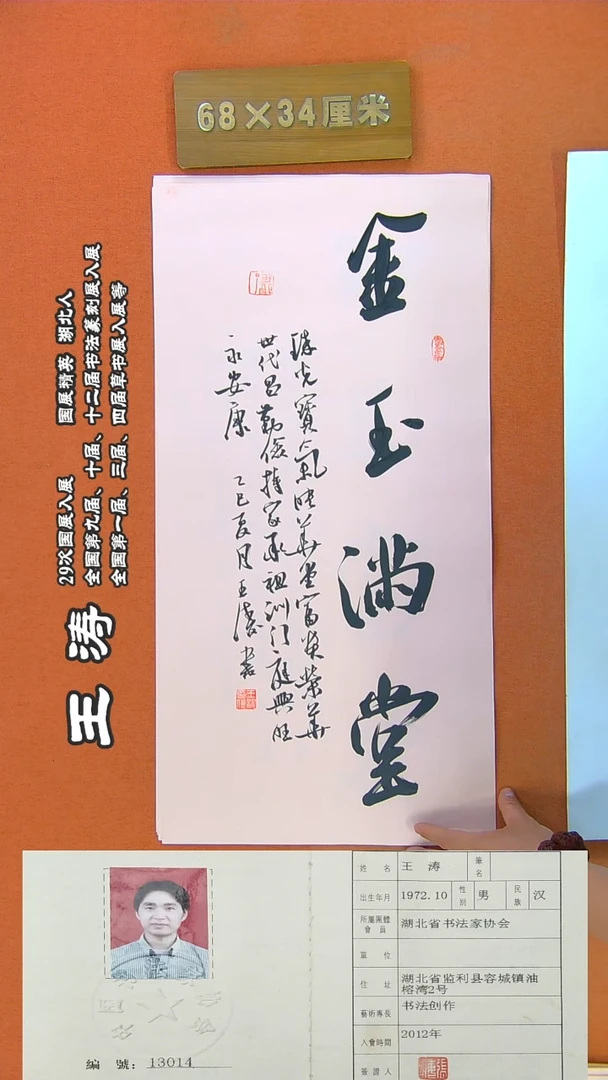 68×34厘米
金玉满堂
珠光宝氣映華堂富贵榮華
世代昌勤儉持家承祖训门庭興旺
永安康 乙巳夏月王涛书
王涛
29次国展入展 国展精英 湖北人
全国第九届、十届、十二届书法篆刻展入展
全国第一届、三届、四届草书展入展等
姓名 王涛 筆名
出生年月 1972.10 性别 男 民族 汉
所屬團體會員 湖北省书法家协会
單位
住址 湖北省监利县容城镇油榕湾2号
藝術專長 书法创作
入會時間 2012年
簽證人
編號：13014